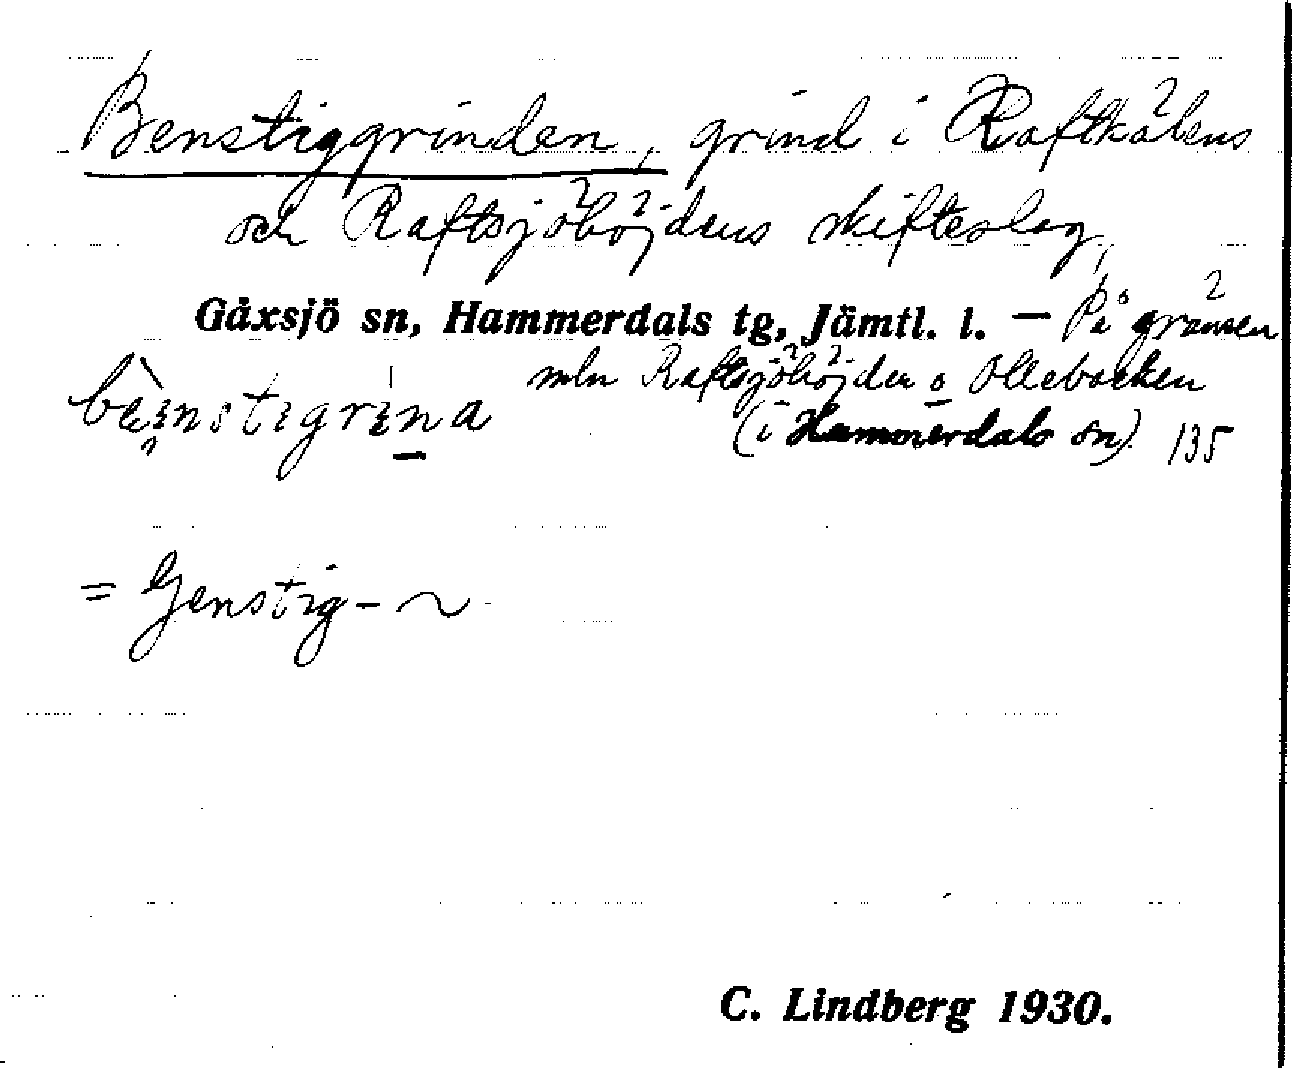 Benstiggrinden, grind i Raftkälens
och Raftsjöhöjdens skifteslag,
Gåxsjö sn, Hammerdals tg, Jämtl. l. — På gränsen
mln Raftsjöhöjden o Ollebacken
(i Hammerdals sn) 135
= Genstig- ~
C. Lindberg 1930.